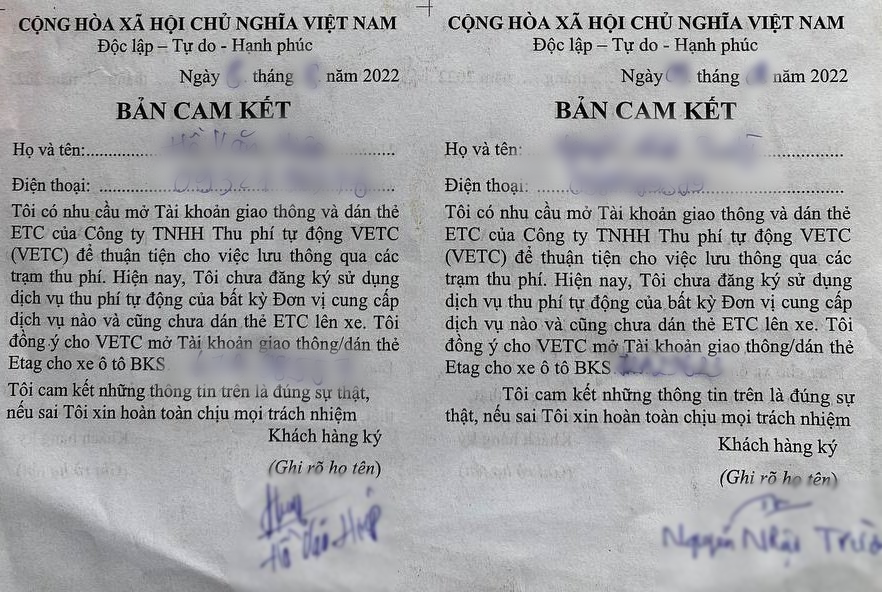 CỘNG HÒA XÃ HỘI CHỦ NGHĨA VIỆT NAM
Độc lập – Tự do - Hạnh phúc
Ngày tháng năm 2022
BẢN CAM KẾT
Họ và tên:
Điện thoại:
Tôi có nhu cầu mở Tài khoản giao thông và dán thẻ
ETC của Công ty TNHH Thu phí tự động VETC
(VETC) để thuận tiện cho việc lưu thông qua các
trạm thu phí. Hiện nay, Tôi chưa đăng ký sử dụng
dịch vụ thu phí tự động của bất kỳ Đơn vị cung cấp
dịch vụ nào và cũng chưa dán thẻ ETC lên xe. Tôi
đồng ý cho VETC mở Tài khoản giao thông/dán thẻ
Etag cho xe ô tô BKS
Tôi cam kết những thông tin trên là đúng sự thật,
nếu sai Tôi xin hoàn toàn chịu mọi trách nhiệm
Khách hàng ký
(Ghi rõ họ tên)
CỘNG HÒA XÃ HỘI CHỦ NGHĨA VIỆT NAM
Độc lập – Tự do - Hạnh phúc
Ngày tháng năm 2022
BẢN CAM KẾT
Họ và tên:
Điện thoại:
Tôi có nhu cầu mở Tài khoản giao thông và dán thẻ
ETC của Công ty TNHH Thu phí tự động VETC
(VETC) để thuận tiện cho việc lưu thông qua các
trạm thu phí. Hiện nay, Tôi chưa đăng ký sử dụng
dịch vụ thu phí tự động của bất kỳ Đơn vị cung cấp
dịch vụ nào và cũng chưa dán thẻ ETC lên xe. Tôi
đồng ý cho VETC mở Tài khoản giao thông/dán thẻ
Etag cho xe ô tô BKS
Tôi cam kết những thông tin trên là đúng sự
thật, nếu sai Tôi xin hoàn toàn chịu mọi trách nhiệm
Khách hàng ký
(Ghi rõ họ tên)
Nguyễn Nhật